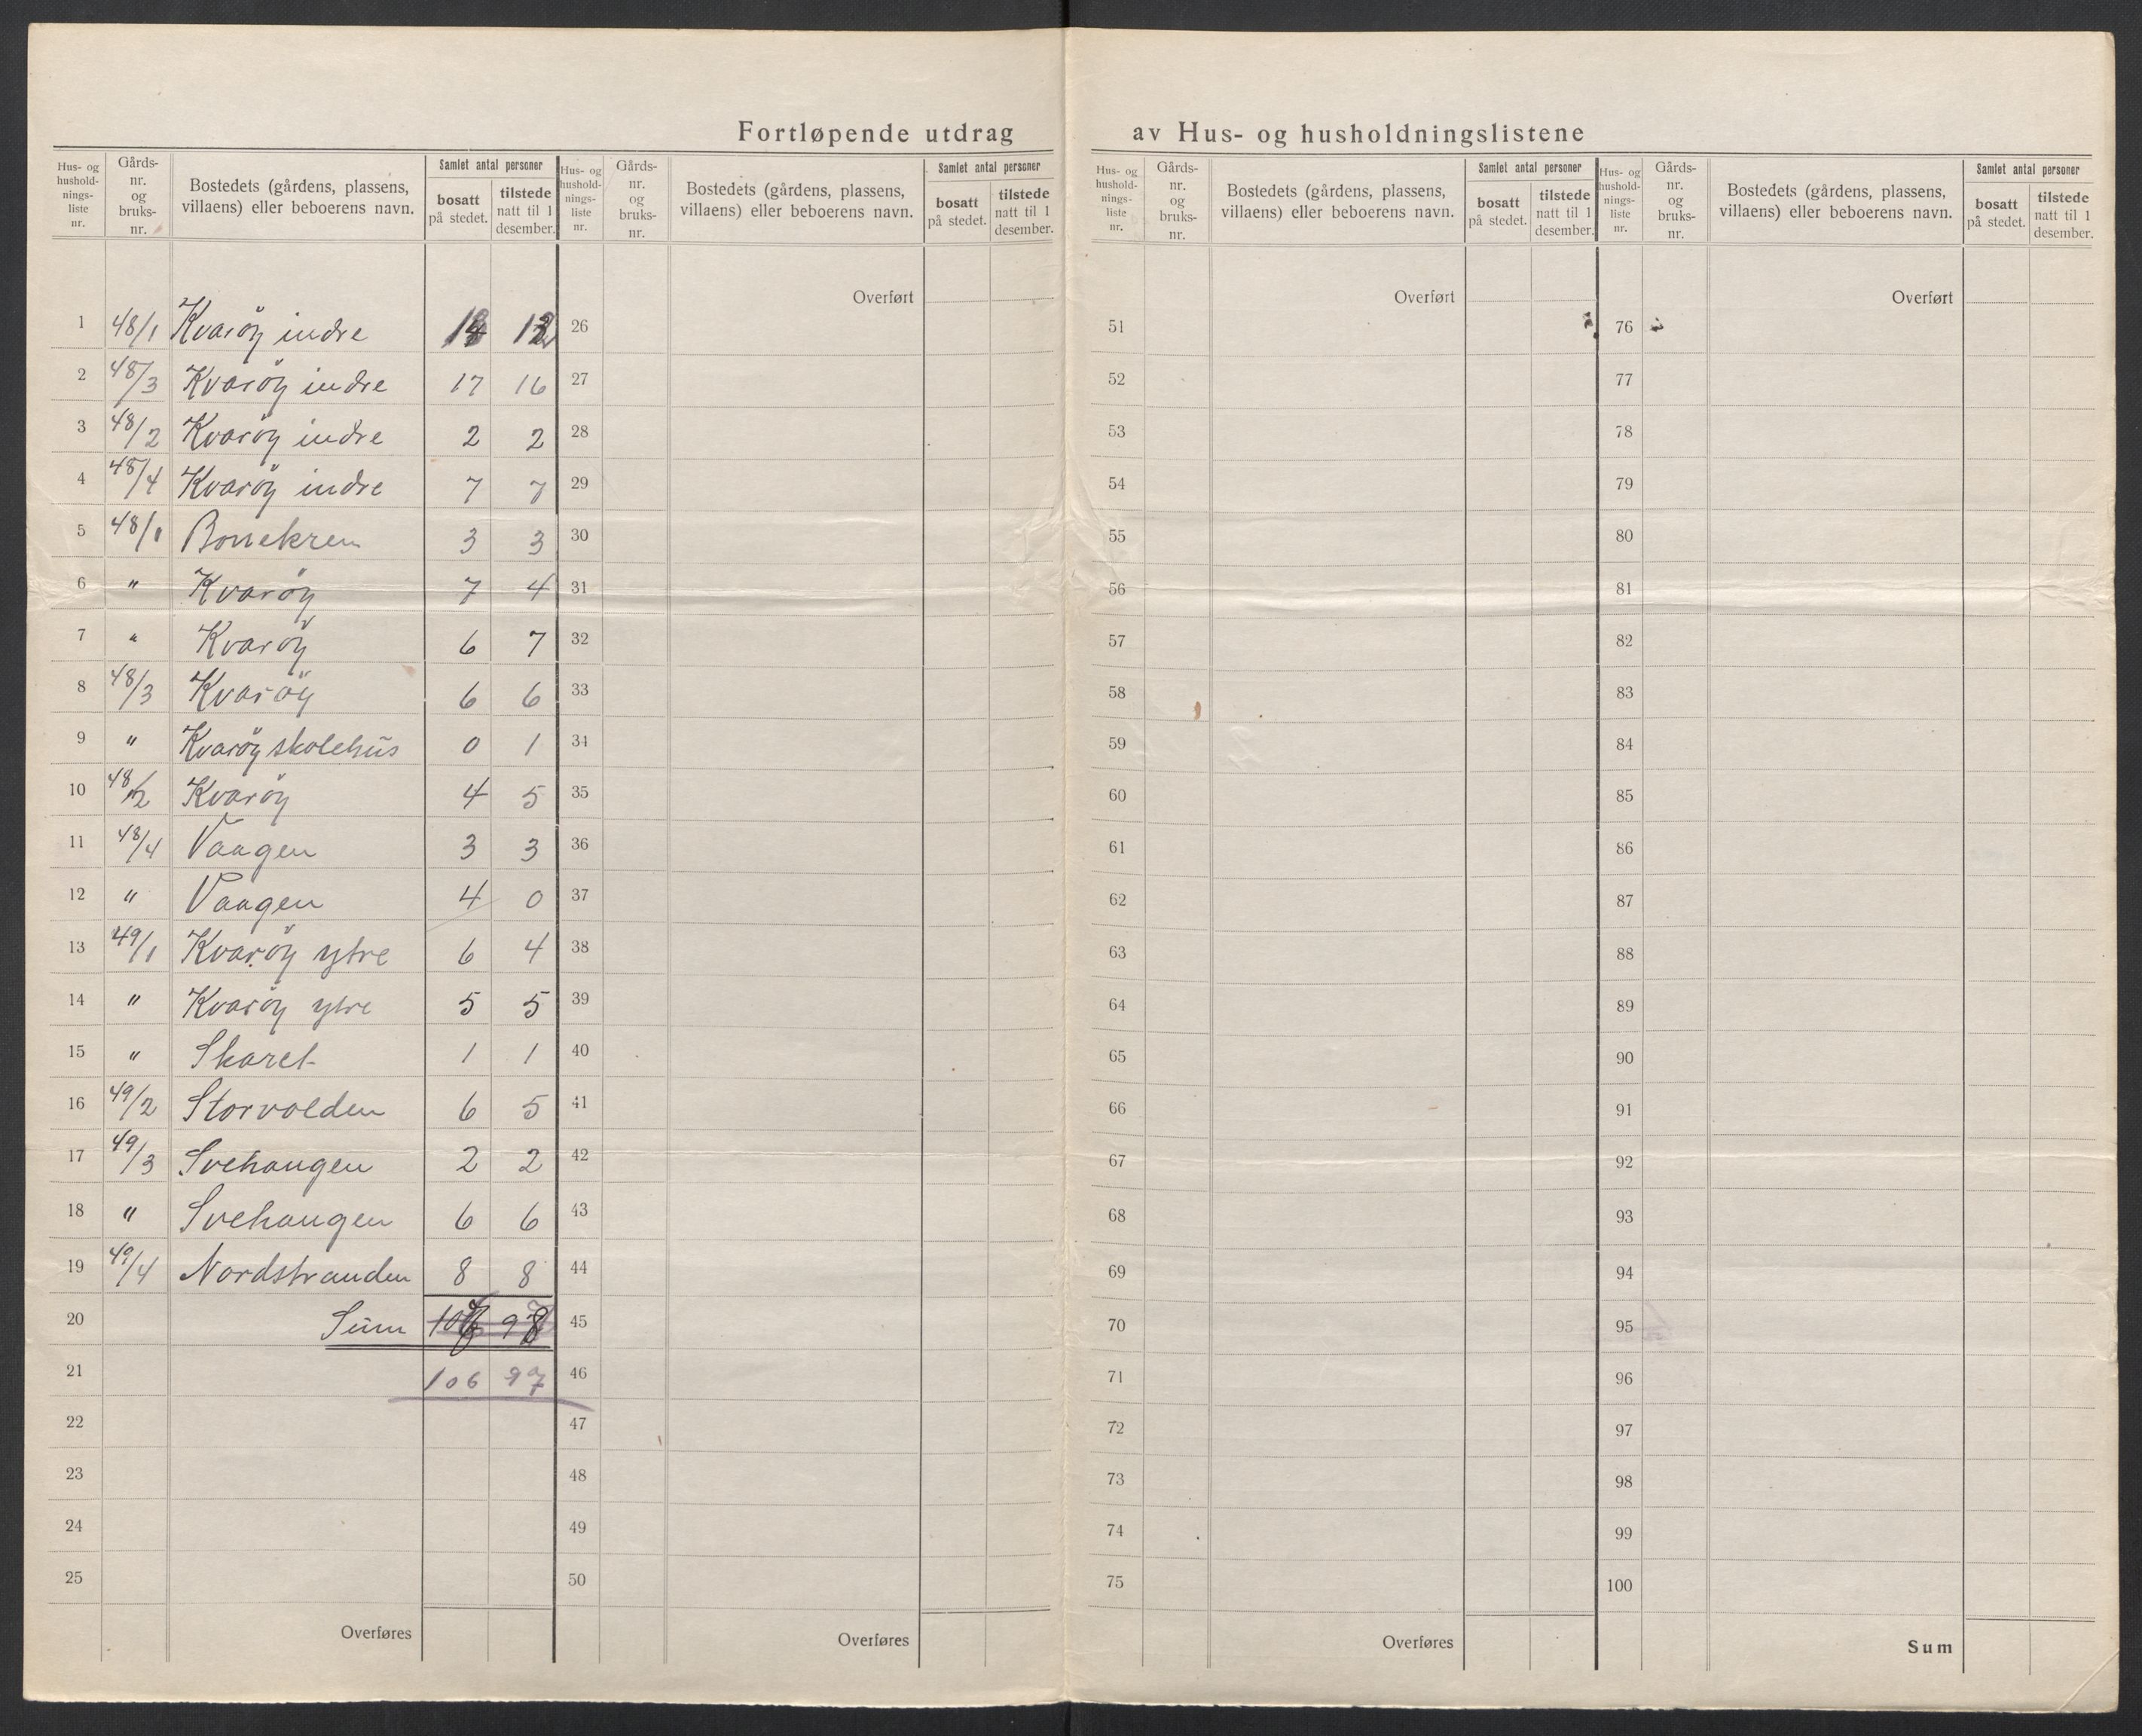 Fortløpende utdrag av Hus- og husholdningslistene
Hus- og husholdnings-liste nr. | Gårds-nr. og bruks-nr. | Bostedets (gårdens, plassens, villaens) eller beboerens navn. | Samlet antal personer | bosatt på stedet. | tilstede natt til 1 desember.
1 48/1 Kvaröy indre 13 12
2 48/3 Kvaröy indre 17 16
3 48/2 Kvaröy indre 2 2
4 48/4 Kvaröy indre 7 7
5 48/1 3 3
6 " Kvaröy 7 4
7 " Kvaröy 6 7
8 48/3 Kvaröy 6 6
9 " Kvaröy skolehus 0 1
10 48/2 Kvaröy 4 5
11 48/4 Vaagen 3 3
12 " Vaagen 4 0
13 49/1 Kvaröy ytre 6 4
14 " Kvaröy ytre 5 5
15 " Skaret 1 1
16 49/2 Storvolden 6 5
17 49/3 Svehaugen 2 2
18 " Svehaugen 6 6
19 49/4 Nordstranden 8 8
20 Sum
21 106 97
22
23
24
25
Overføres
Hus- og husholdnings-liste nr. | Gårds-nr. og bruks-nr. | Bostedets (gårdens, plassens, villaens) eller beboerens navn. | Samlet antal personer | bosatt på stedet. | tilstede natt til 1 desember.
Overført
26
27
28
29
30
31
32
33
34
35
36
37
38
39
40
41
42
43
44
45
46
47
48
49
50
Overføres
Hus- og husholdnings-liste nr. | Gårds-nr. og bruks-nr. | Bostedets (gårdens, plassens, villaens) eller beboerens navn. | Samlet antal personer | bosatt på stedet. | tilstede natt til 1 desember.
Overført
51
52
53
54
55
56
57
58
59
60
61
62
63
64
65
66
67
68
69
70
71
72
73
74
75
Overføres
Hus- og husholdnings-liste nr. | Gårds-nr. og bruks-nr. | Bostedets (gårdens, plassens, villaens) eller beboerens navn. | Samlet antal personer | bosatt på stedet. | tilstede natt til 1 desember.
Overført
76
77
78
79
80
81
82
83
84
85
86
87
88
89
90
91
92
93
94
95
96
97
98
99
100
Sum